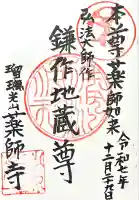 本尊薬師如来
令和七年
十二月二十九日
弘法大師作
鎌作地蔵尊
瑠璃光山
薬師寺